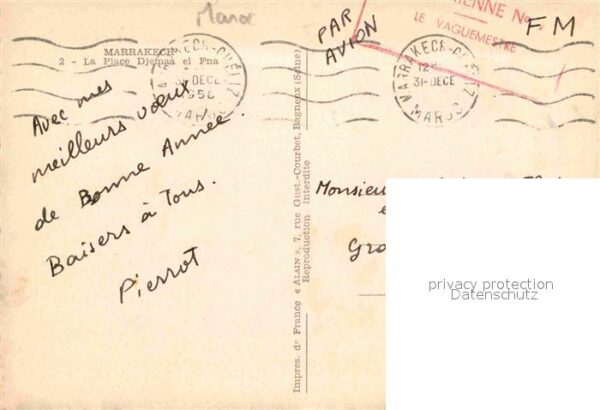 Maroc
MARRAKECH
2 - La Place Djemaa el Fna
MARRAKECH-GUELIZ
31-DECE
1956
MAROC
Avec mes
meilleurs vœux
de Bonne Année.
Baisers à Tous.
Pierrot
Impres. de France « ALAIN », 7, rue Gust.-Courbet, Bagneux (Seine)
Reproduction interdite
PAR
AVION
LE VAGUEMESTRE
FM
MARRAKECH-GUELIZ
31-DECE
MAROC
Monsieur
Gro
privacy protection
Datenschutz